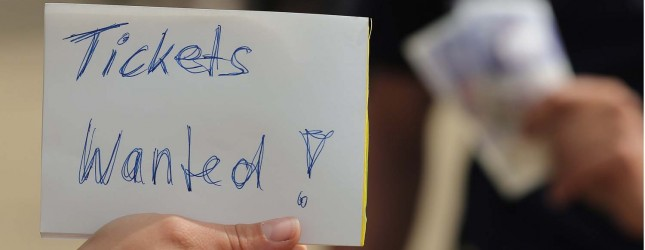 Tickets
Wanted !